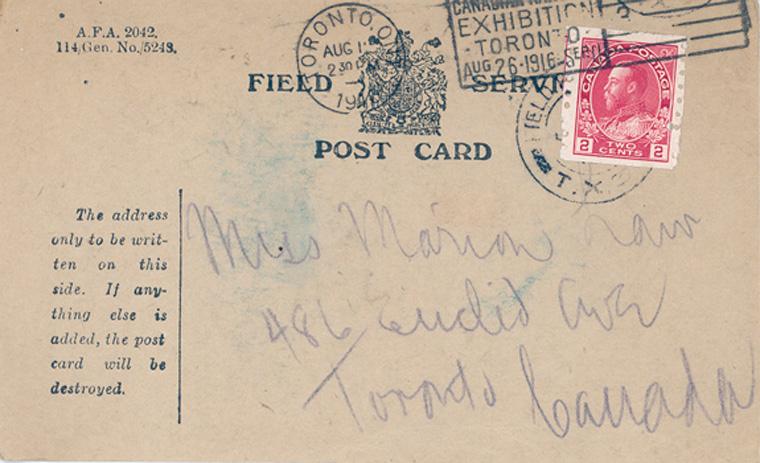 A.F.A. 2042.
114/Gen. No./5248.
TORONTO, O
AUG 1
2 30
19
CANADIAN
EXHIBITION
TORONTO
AUG 26-1916-SEP
FIELD SERV
POST CARD
CANADA POSTAGE
2 TWO CENTS 2
T.X
The address
only to be writ-
ten on this
side. If any-
thing else is
added, the post
card will be
destroyed.
Miss Marion Law
486 Euclid Ave
Toronto Canada